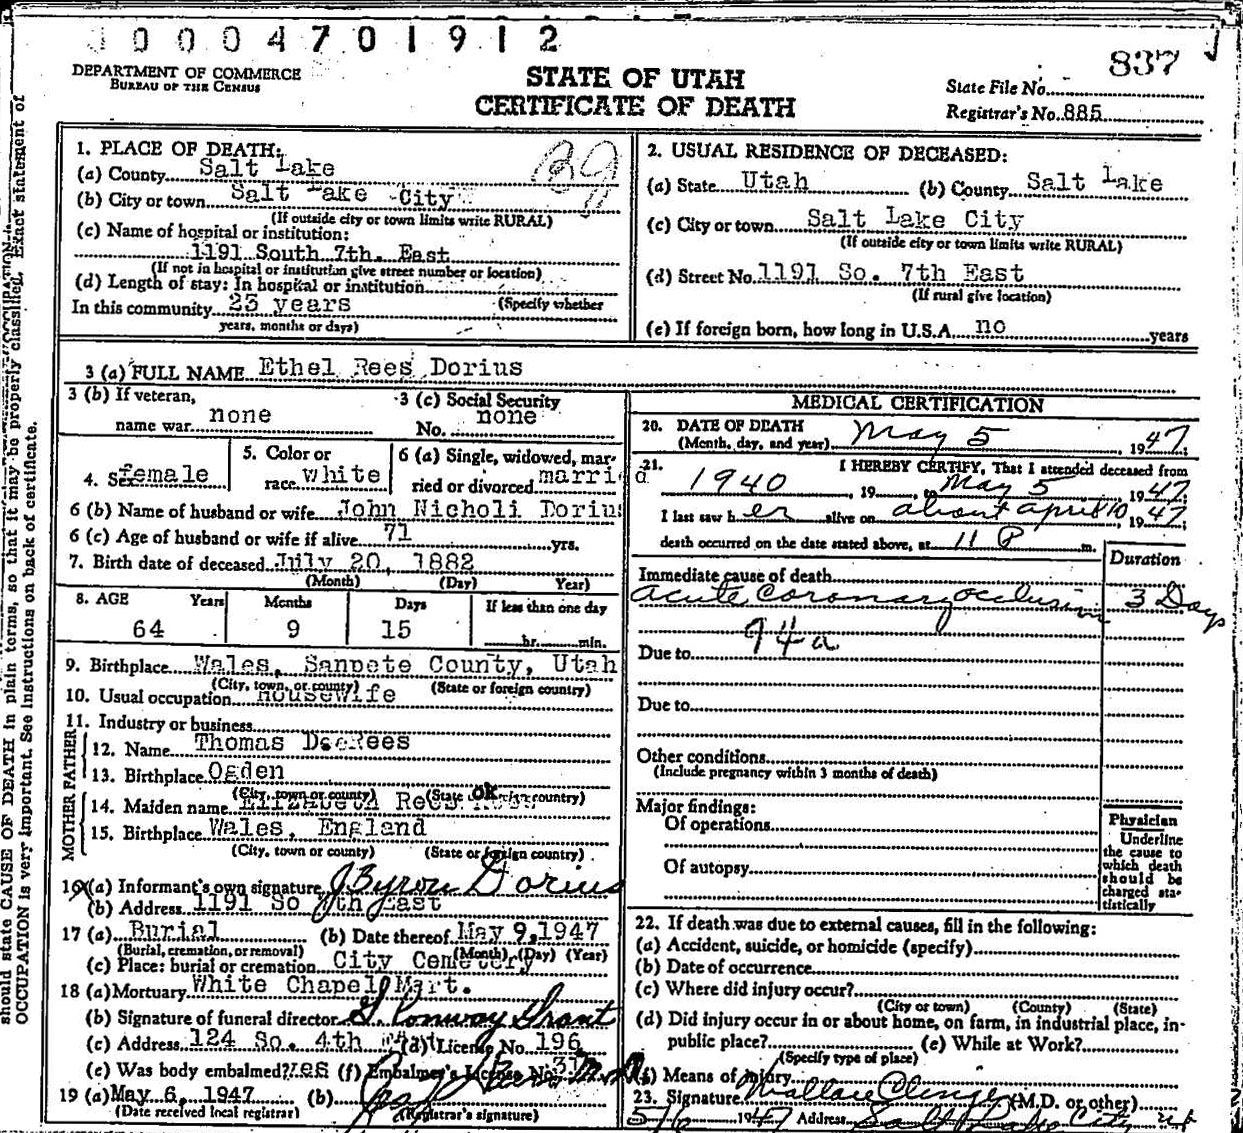 0 0 0 4 7 0 1 9 1 2
837
DEPARTMENT OF COMMERCE
BUREAU OF THE CENSUS
STATE OF UTAH
CERTIFICATE OF DEATH
State File No.
Registrar's No. 885
should state CAUSE OF DEATH in plain terms, so that it may be properly classified. Exact statement of
OCCUPATION is very important. See instructions on back of certificate.
1. PLACE OF DEATH:
(a) County Salt Lake
(b) City or town Salt Lake City
(If outside city or town limits write RURAL)
(c) Name of hospital or institution:
1191 South 7th. East
(If not in hospital or institution give street number or location)
(d) Length of stay: In hospital or institution
(Specify whether
In this community 23 years
years, months or days)
2. USUAL RESIDENCE OF DECEASED:
(a) State Utah (b) County Salt Lake
(c) City or town Salt Lake City
(If outside city or town limits write RURAL)
(d) Street No. 1191 So. 7th East
(If rural give location)
(e) If foreign born, how long in U.S.A. no years
3 (a) FULL NAME Ethel Rees Dorius
3 (b) If veteran,
name war none
3 (c) Social Security
No. none
4. Sex female
5. Color or
race white
6 (a) Single, widowed, mar-
ried or divorced married
6 (b) Name of husband or wife John Nicholi Dorius
6 (c) Age of husband or wife if alive 71 yrs.
7. Birth date of deceased July 20, 1882
(Month) (Day) Year)
8. AGE Years Months Days If less than one day
64 9 15 hr. min.
9. Birthplace Wales, Sanpete County, Utah
(City, town, or county) (State or foreign country)
10. Usual occupation housewife
11. Industry or business
FATHER
12. Name Thomas Rees
13. Birthplace Ogden
(City, town or county) (State or foreign country)
MOTHER
14. Maiden name Elizabeth Rees
15. Birthplace Wales, England
(City, town or county) (State or foreign country)
16 (a) Informant's own signature J Byron Dorius
(b) Address 1191 So 7th East
17 (a) Burial (b) Date thereof May 9, 1947
(Burial, cremation, or removal) (Month) (Day) (Year)
(c) Place: burial or cremation City Cemetery
18 (a) Mortuary White Chapel Mart.
(b) Signature of funeral director G. Conway Grant
(c) Address 124 So. 4th (d) License No. 196
(e) Was body embalmed? yes (f) Embalmer's License No.
19 (a) May 6, 1947 (b)
(Date received local registrar) (Registrar's signature)
MEDICAL CERTIFICATION
20. DATE OF DEATH
(Month, day, and year) May 5, 1947
21. I HEREBY CERTIFY, That I attended deceased from
1940, 19 , to May 5 1947;
I last saw her alive on about April 10, 1947;
death occurred on the date stated above, at 11 P m.
Duration
Immediate cause of death
acute coronary occlusion 3 Days
94a
Due to
Due to
Other conditions
(Include pregnancy within 3 months of death)
Major findings:
Of operations
Of autopsy
Physician
Underline
the cause to
which death
should be
charged sta-
tistically
22. If death was due to external causes, fill in the following:
(a) Accident, suicide, or homicide (specify)
(b) Date of occurrence
(c) Where did injury occur?
(City or town) (County) (State)
(d) Did injury occur in or about home, on farm, in industrial place, in-
public place? (e) While at Work?
(Specify type of place)
(f) Means of injury
23. Signature Wallace Clinger (M.D. or other)
5/6 1947 Address Salt Lake City Ut